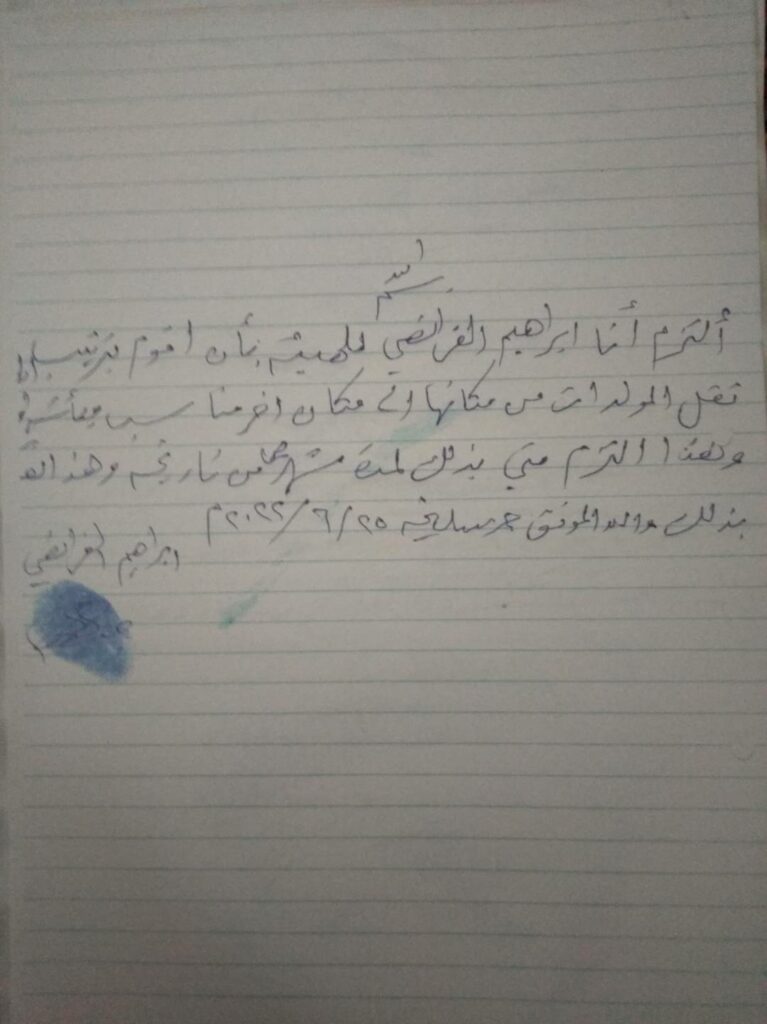 بسم الله
ألتزم أنا ابراهيم الفرائضي للهيئة بأن اقوم بترتيب
نقل المولدات من مكانها الى مكان اخر مناسب
وهذا التزم مني بذلك لمدة شهر من تاريخه وهذا
بذلك والله الموفق حرر بتاريخه ٢٥/٩/٢٠٢٢م
ابراهيم الفرائضي